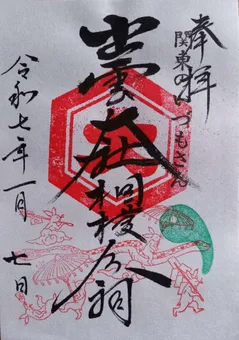 奉拝
関東のいづもさん
出雲大社
相模分祠
令和七年一月七日